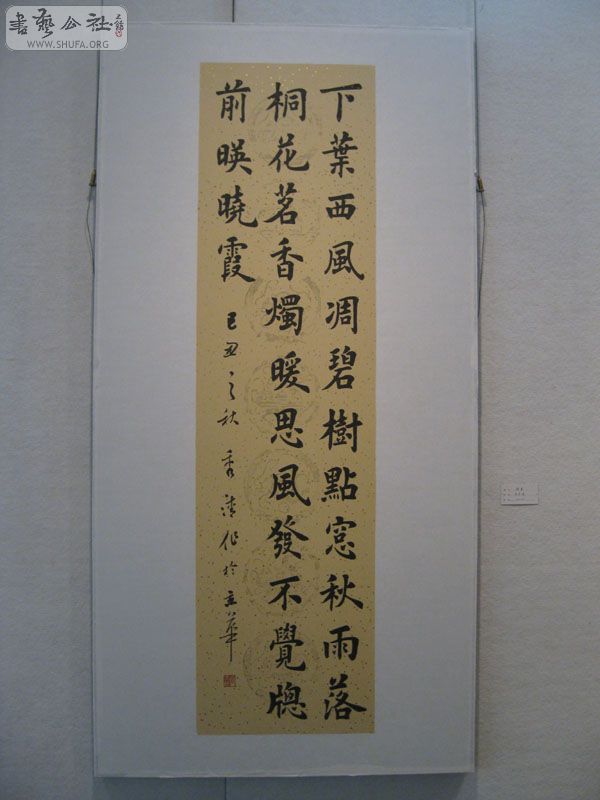 書藝公社
WWW.SHUFA.ORG
下葉西風凋碧樹點窓秋雨落
桐花茗香燭暖思風發不覺牕
前暎曉霞
己丑之秋 秀清作於立華